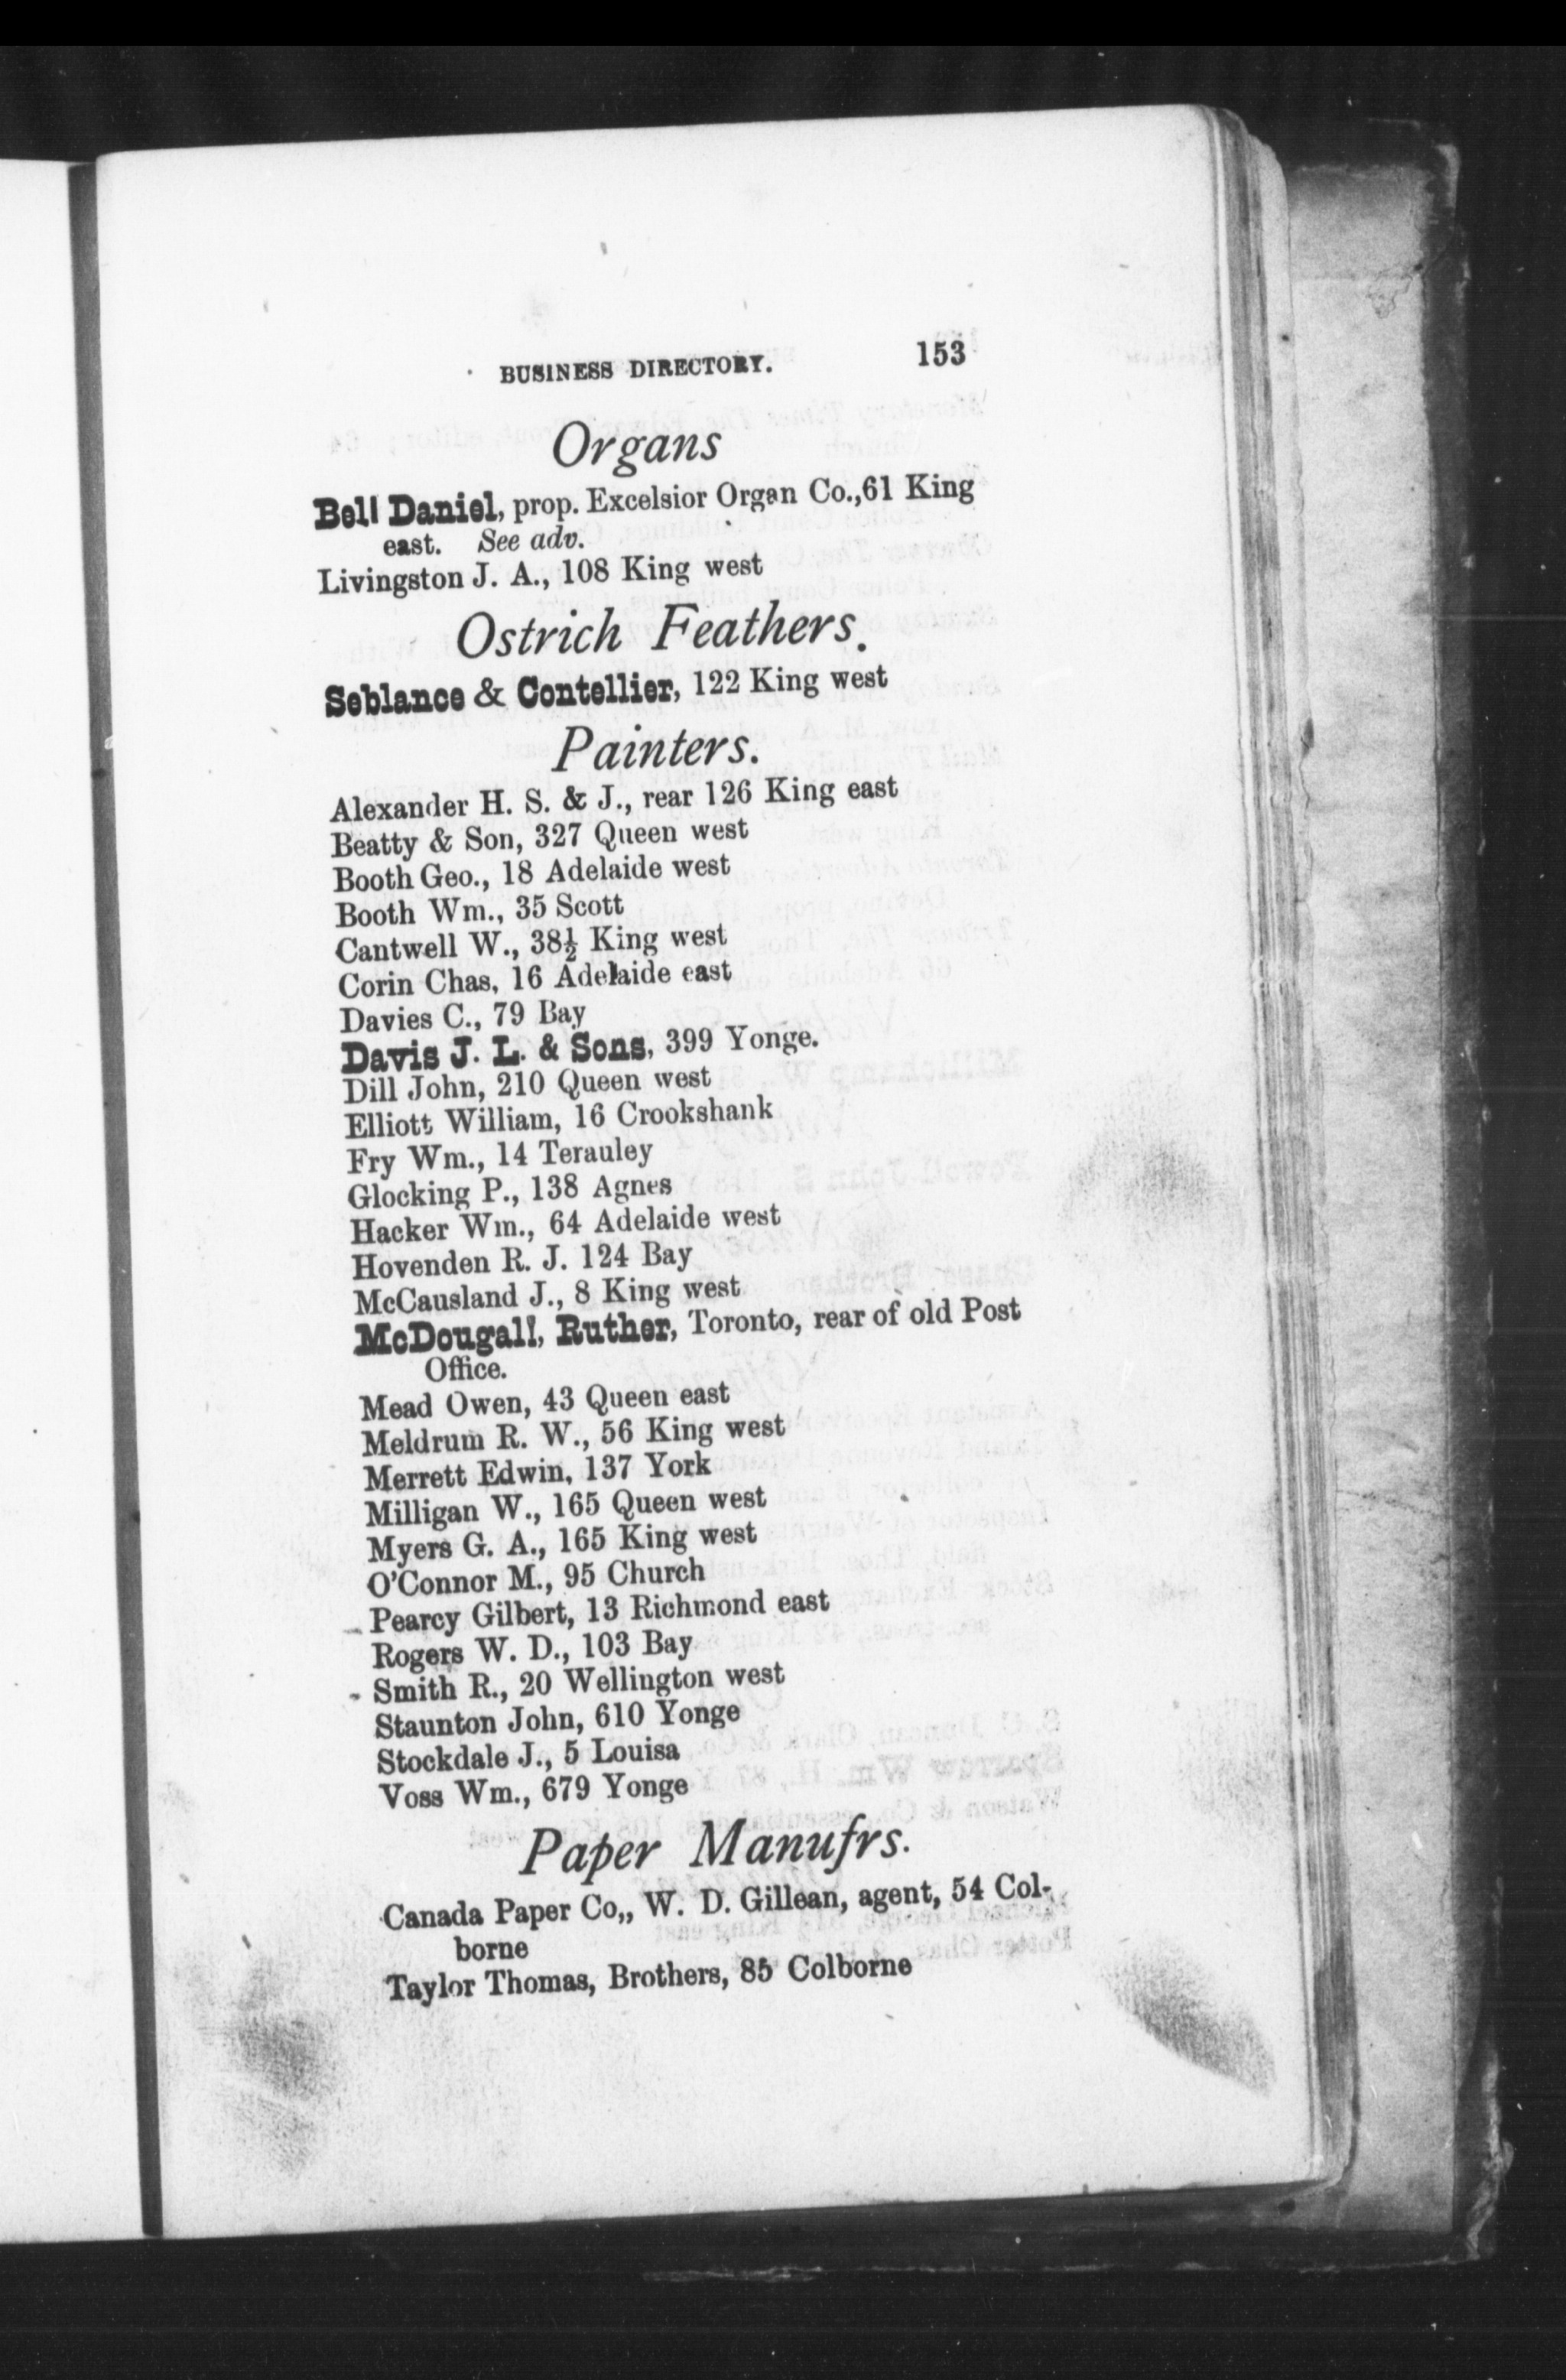 BUSINESS DIRECTORY. 153
Organs
Bell Daniel, prop. Excelsior Organ Co.,61 King
east. See adv.
Livingston J. A., 108 King west
Ostrich Feathers.
Seblance & Contellier, 122 King west
Painters.
Alexander H. S. & J., rear 126 King east
Beatty & Son, 327 Queen west
Booth Geo., 18 Adelaide west
Booth Wm., 35 Scott
Cantwell W., 38½ King west
Corin Chas, 16 Adelaide east
Davies C., 79 Bay
Davis J. L. & Sons, 399 Yonge.
Dill John, 210 Queen west
Elliott William, 16 Crookshank
Fry Wm., 14 Terauley
Glocking P., 138 Agnes
Hacker Wm., 64 Adelaide west
Hovenden R. J. 124 Bay
McCausland J., 8 King west
McDougall, Ruther, Toronto, rear of old Post
Office.
Mead Owen, 43 Queen east
Meldrum R. W., 56 King west
Merrett Edwin, 137 York
Milligan W., 165 Queen west
Myers G. A., 165 King west
O'Connor M., 95 Church
Pearcy Gilbert, 13 Richmond east
Rogers W. D., 103 Bay
Smith R., 20 Wellington west
Staunton John, 610 Yonge
Stockdale J., 5 Louisa
Voss Wm., 679 Yonge
Paper Manufrs.
Canada Paper Co,, W. D. Gillean, agent, 54 Col-
borne
Taylor Thomas, Brothers, 85 Colborne